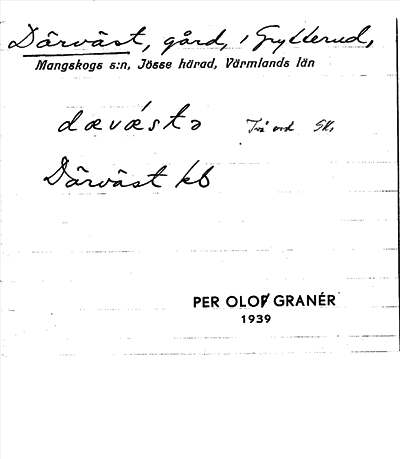 Därväst, gård, i Grytterud,
Mangskogs s:n, Jösse härad, Värmlands län
dævǽstə Två ord SK.
Därväst kb
PER OLOF GRANÉR
1939